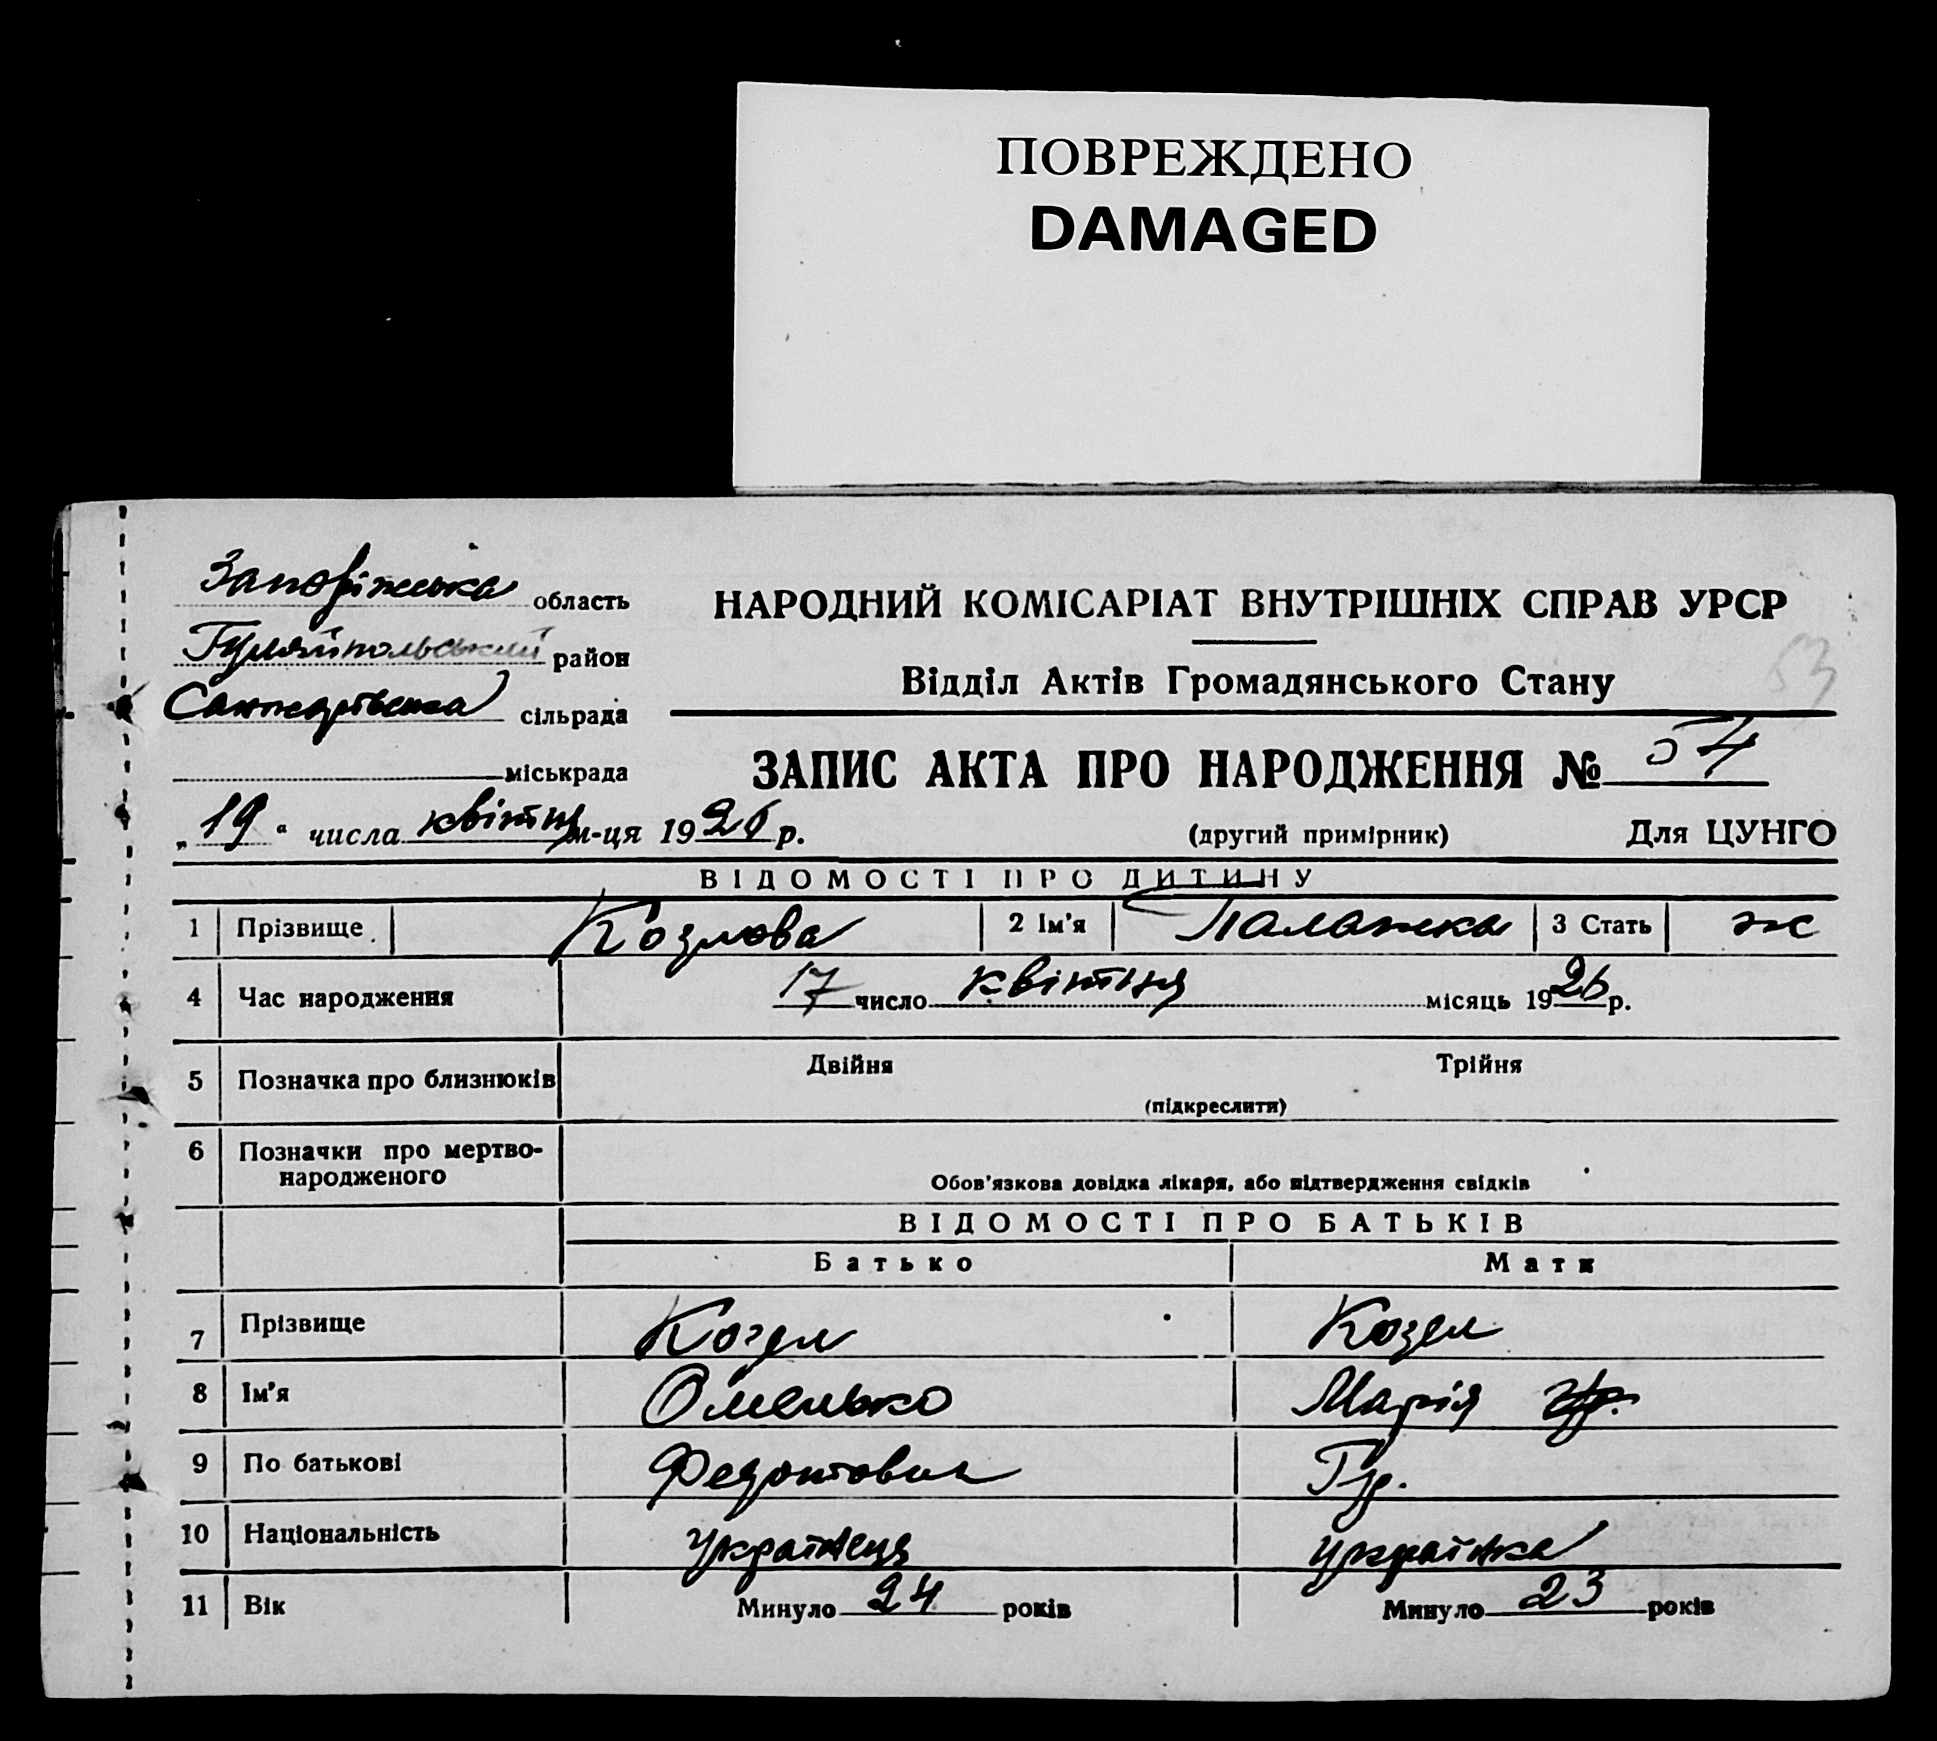 ПОВРЕЖДЕНО
DAMAGED
Запоріжська область
Гуляйпольський район
Санжарівська сільрада
міськрада
НАРОДНИЙ КОМІСАРІАТ ВНУТРІШНІХ СПРАВ УРСР
53
Відділ Актів Громадянського Стану
ЗАПИС АКТА ПРО НАРОДЖЕННЯ № 54
„19“ числа квітня м-ця 1926 р.
(другий примірник) Для ЦУНГО
ВІДОМОСТІ ПРО ДИТИНУ
1 Прізвище Козлова 2 Ім'я Палажка 3 Стать ж
4 Час народження 17 число квітня місяць 1926 р.
5 Позначка про близнюків Двійня Трійня
(підкреслити)
6 Позначки про мертво-
народженого
Обов'язкова довідка лікаря, або підтвердження свідків
ВІДОМОСТІ ПРО БАТЬКІВ
Батько Мати
7 Прізвище Козел Козел
8 Ім'я Омелько Марія
9 По батькові Федотович Гр.
10 Національність українець українка
11 Вік Минуло 24 років Минуло 23 років